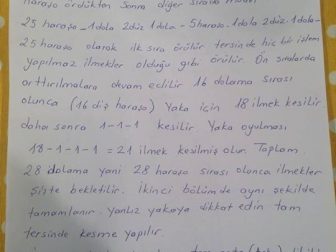 haraşo ördükten sonra diğer sırada model
25 haraşo - 1 dola 2 düz 1 dola - 5 haraşo - 1 dola 2 düz 1 dola -
25 haraşo olarak ilk sıra örülür tersinde hiç bir işlem
yapılmaz ilmekler olduğu gibi örülür. Ön sıralarda
arttırılmalara devam edilir 16 dolama sırası
olunca (16 diş haraşo) Yaka için 18 ilmek kesilir
daha sonra 1-1-1 kesilir. Yaka oyulması
18-1-1-1 = 21 ilmek kesilmiş olur. Toplam
28 dolama yani 28 haraşo sırası olunca ilmekler
şişte bekletilir. İkinci bölümde aynı şekilde
tamamlanır. Yanlız yakaya dikkat edin tam
tersinde kesme yapılır.